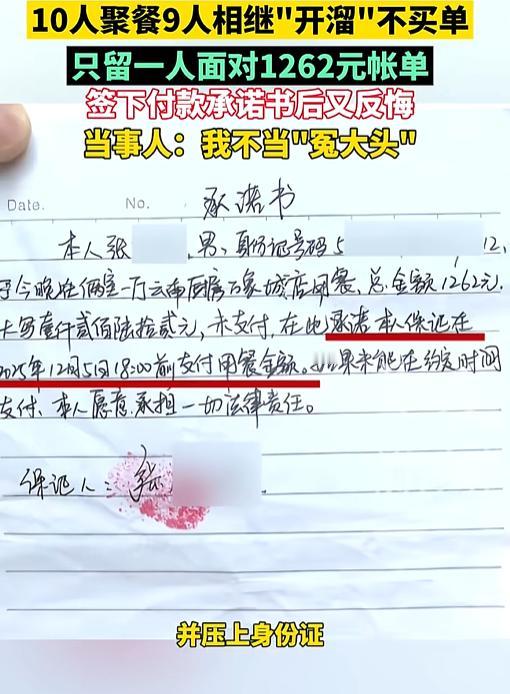 10人聚餐9人相继"开溜"不买单
只留一人面对1262元帐单
签下付款承诺书后又反悔
当事人：我不当"冤大头"
Date.
No.
承诺书
本人张 ,男、身份证号码5 12,
于今晚在两室一厅云南厨房万象城店用餐、总金额1262元.
大写壹仟贰佰陆拾贰元，未支付，在此承诺本人保证在
2025年12月5日18:00前支付用餐金额。如果未能在约定时间
支付、本人愿意承担一切法律责任。
保证人：张
并压上身份证